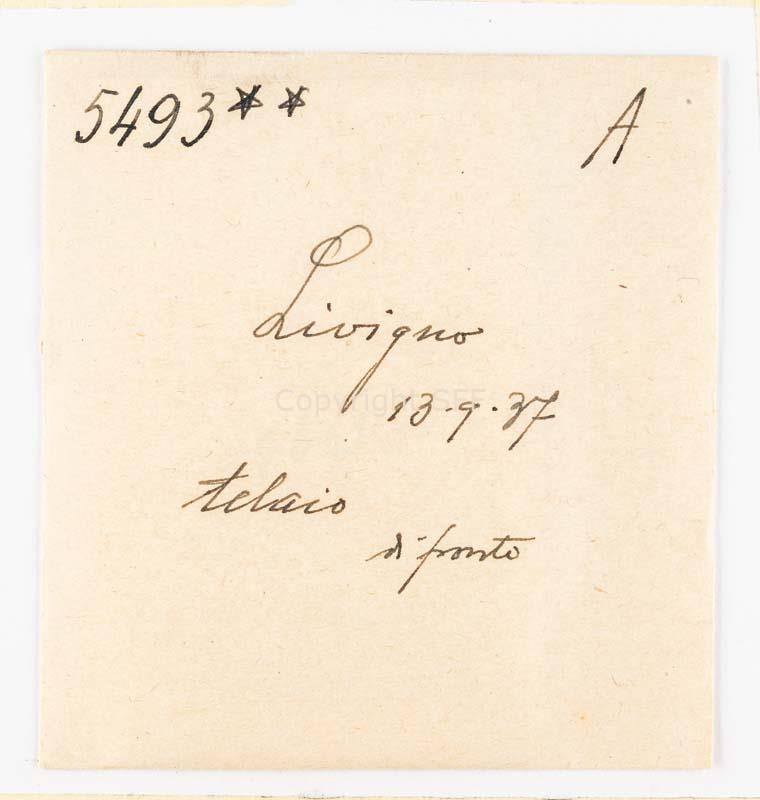 5493** A
Livigno
Copyright SEF
13.9.37
telaio
di fronte